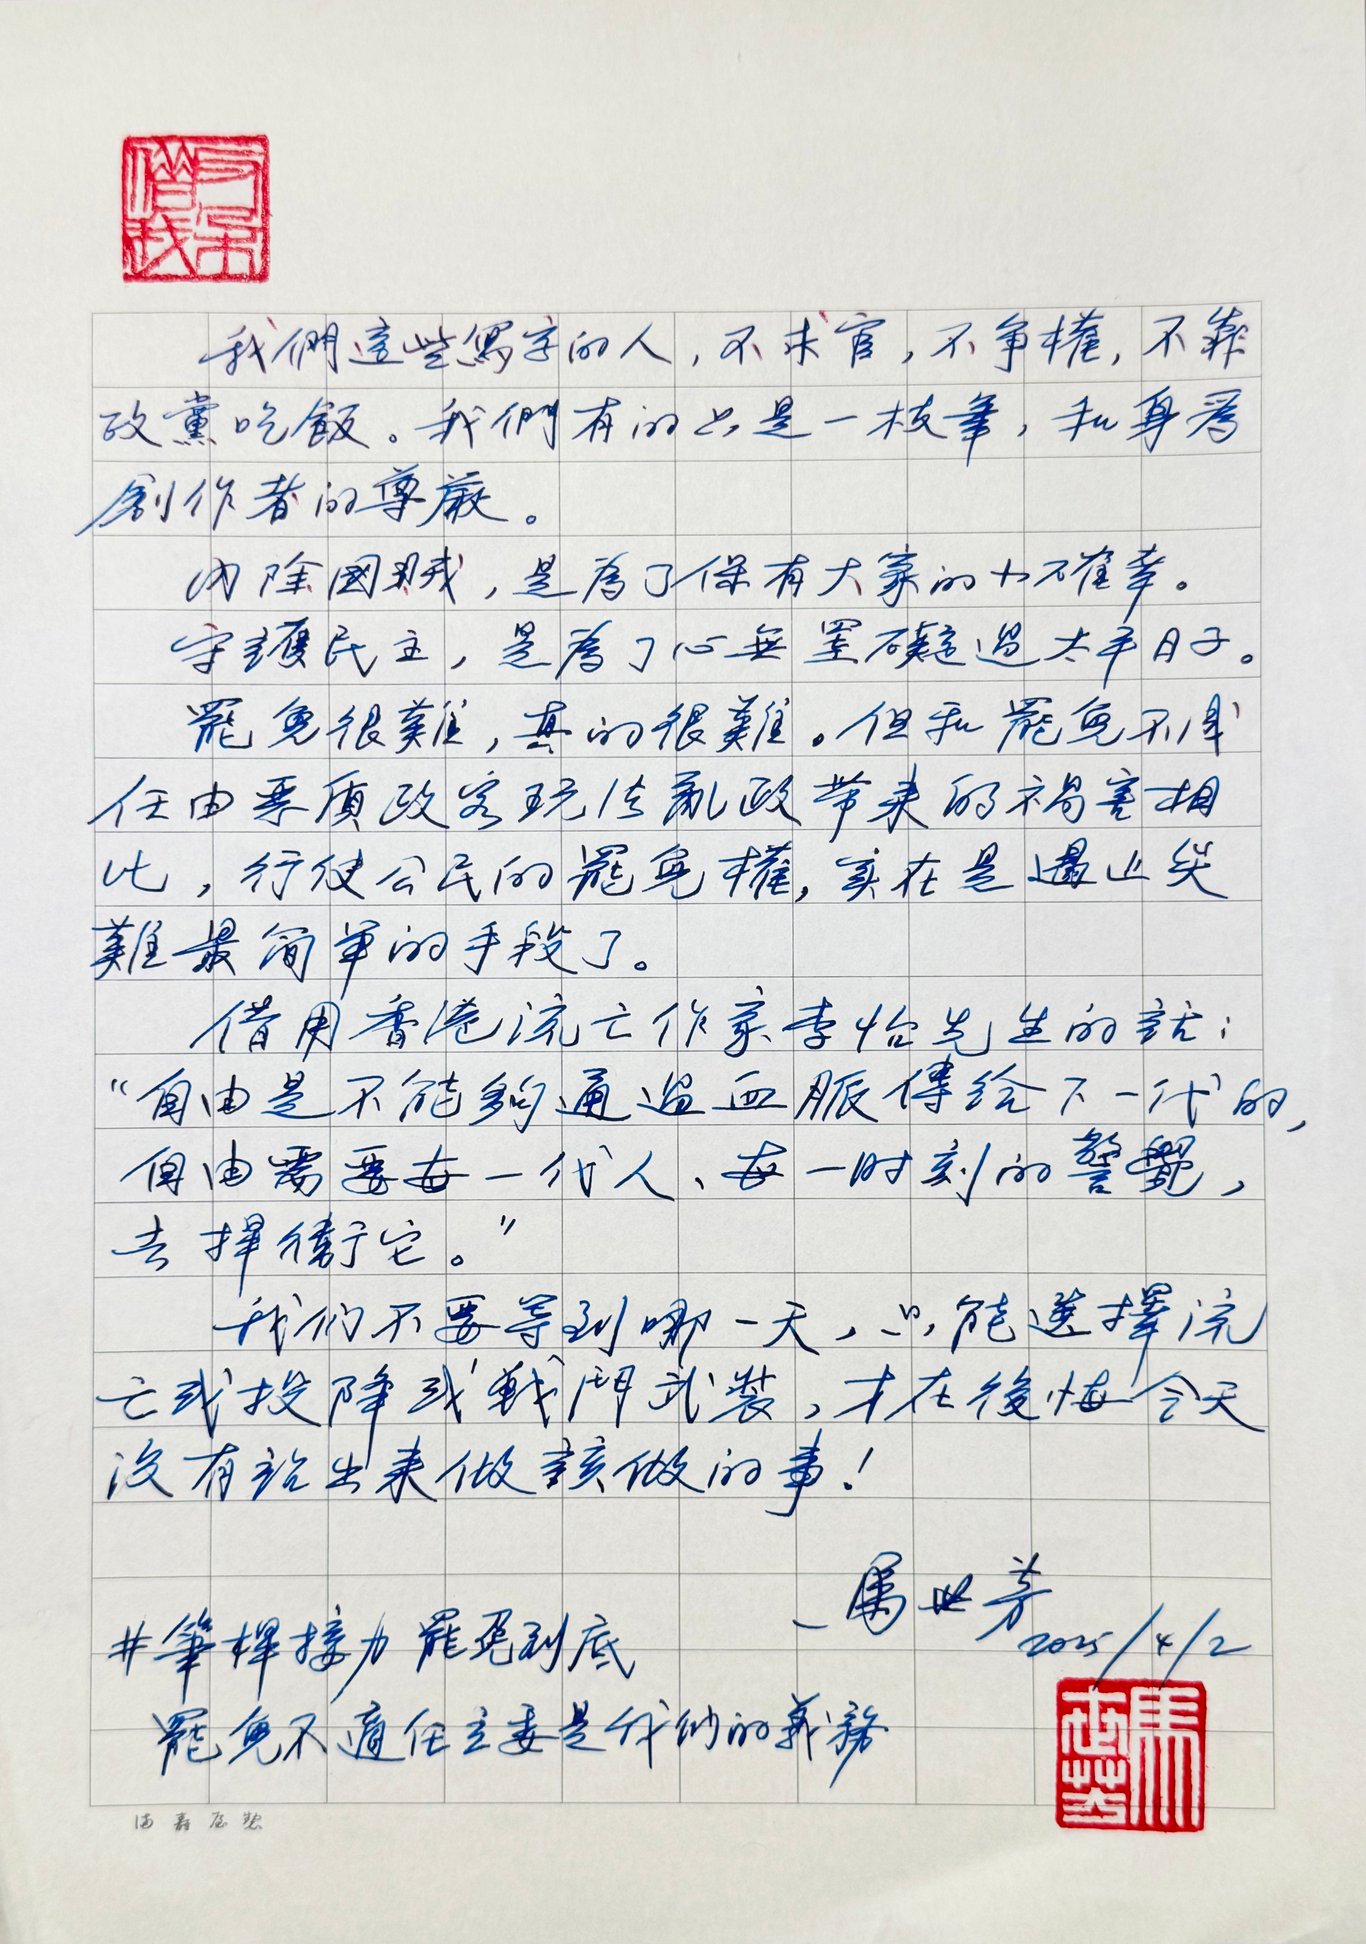 我們這些寫字的人，不求官，不爭權，不靠
政黨吃飯。我們有的只是一枝筆，和身為
創作者的尊嚴。
內除國賊，是為了保有大家的小確幸。
守護民主，是為了心無罣礙過太平日子。
罷免很難，真的很難。但和罷免不成
任由惡質政客玩法亂政帶來的禍害相
比，行使公民的罷免權，實在是遏止災
難最簡單的手段了。
借用香港流亡作家李怡先生的話：
“自由是不能夠通過血脈傳給下一代的，
自由需要每一代人、每一時刻的警覺，
去捍衛它。”
我们不要等到哪一天，只能選擇流
亡或投降或戰鬥武裝，才在後悔今天
沒有站出來做該做的事！
—馬世芳
2025/4/2
#筆桿接力 罷免到底
罷免不適任立委是我們的義務
馬世芳